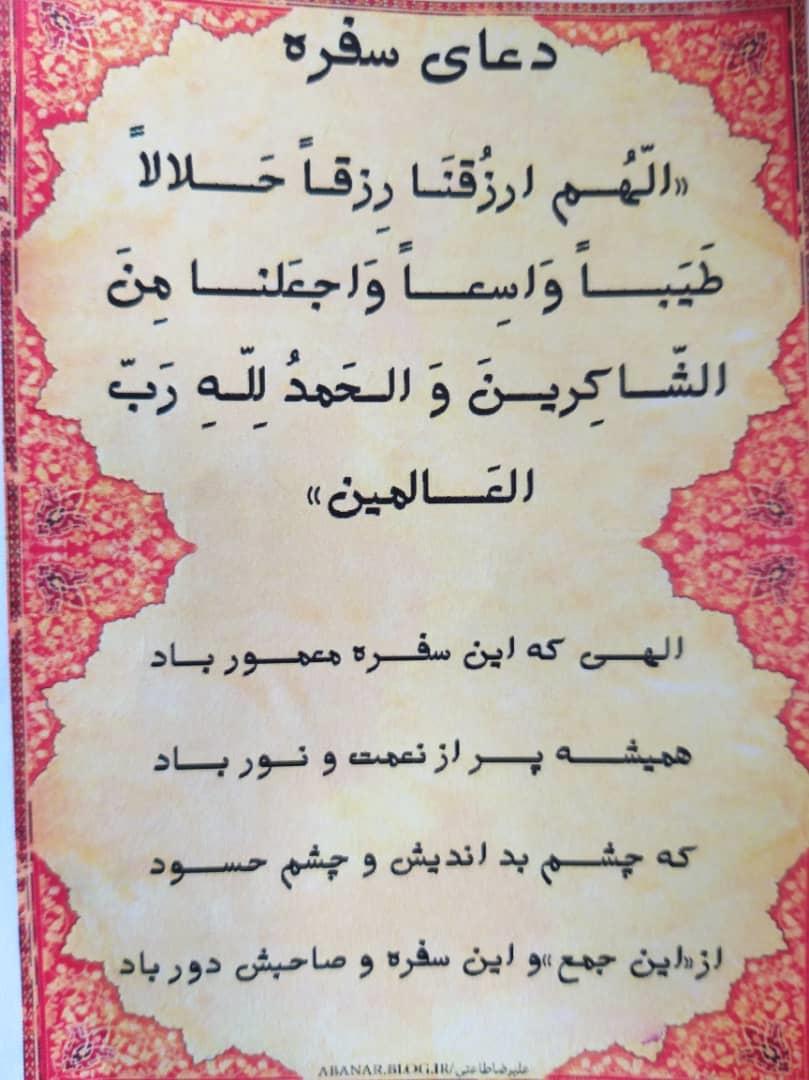 دعای سفره
«الّهُم ارزُقنَا رِزقاً حَلالاً
طَیَباً وَاسِعاً وَاجعَلنا مِنَ
الشّاکِرینَ وَ الحَمدُ لِلّهِ رَبّ
العَالمین»
الهی که این سفره معمور باد
همیشه پر از نعمت و نور باد
که چشم بد اندیش و چشم حسود
از«این جمع»و این سفره و صاحبش دور باد
علیرضاطاعتی/ABANAR.BLOG.IR